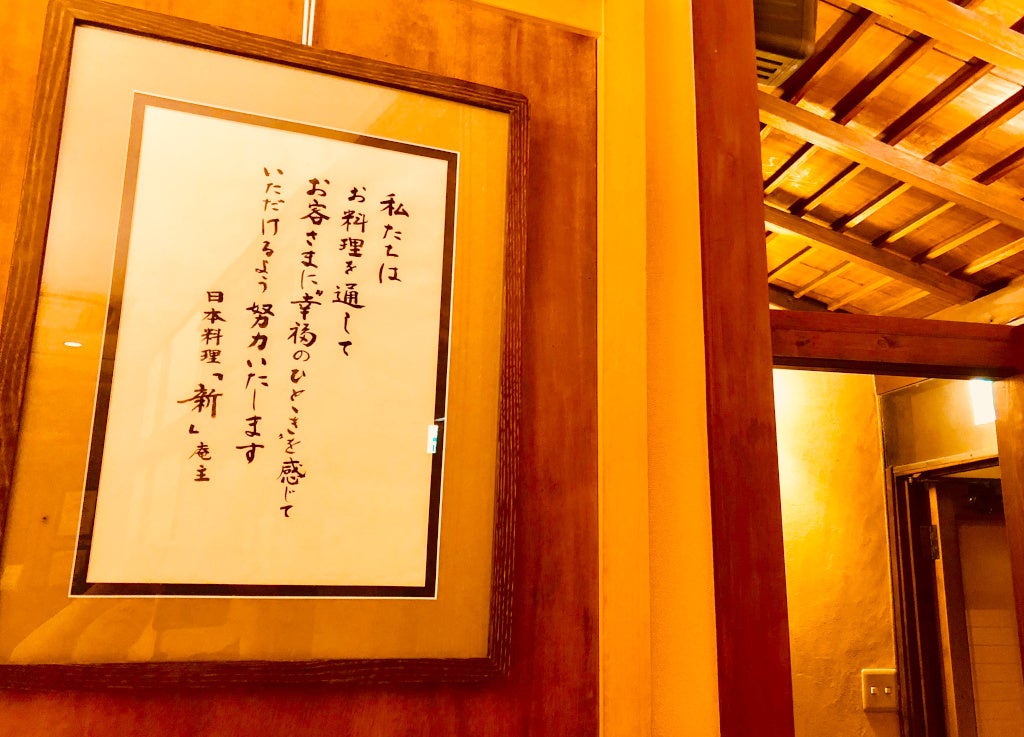 私たちは
お料理を通して
お客さまに"幸福のひととき"を感じて
いただけるよう努力いたします
日本料理「新」庵主